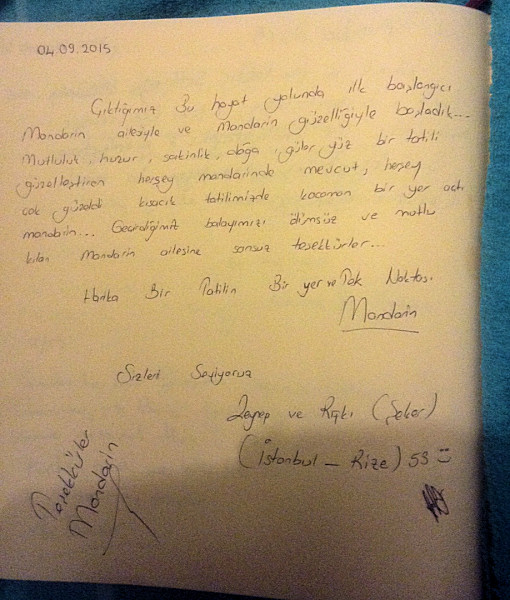 04.09.2015
Çıktığımız Bu hayat yolunda ilk başlangıcı
Mandarin ailesiyle ve Mandarin güzelliğiyle başladık...
Mutluluk, huzur, sakinlik, doğa, güler yüz bir tatili
güzelleştiren herşey mandarinde mevcut, herşey
çok güzeldi kısacık tatilimizde kocaman bir yer açtı
mandarin... Geçirdiğimiz balayımızı ölümsüz ve mutlu
kılan Mandarin ailesine sonsuz teşekkürler...
Harika Bir Tatilin Bir yer ve Tek Noktası.
Mandarin
Sizleri Seviyoruz
Zeynep ve (Şeker)
(İstanbul - Rize) 53
Teşekkürler
Mandarin